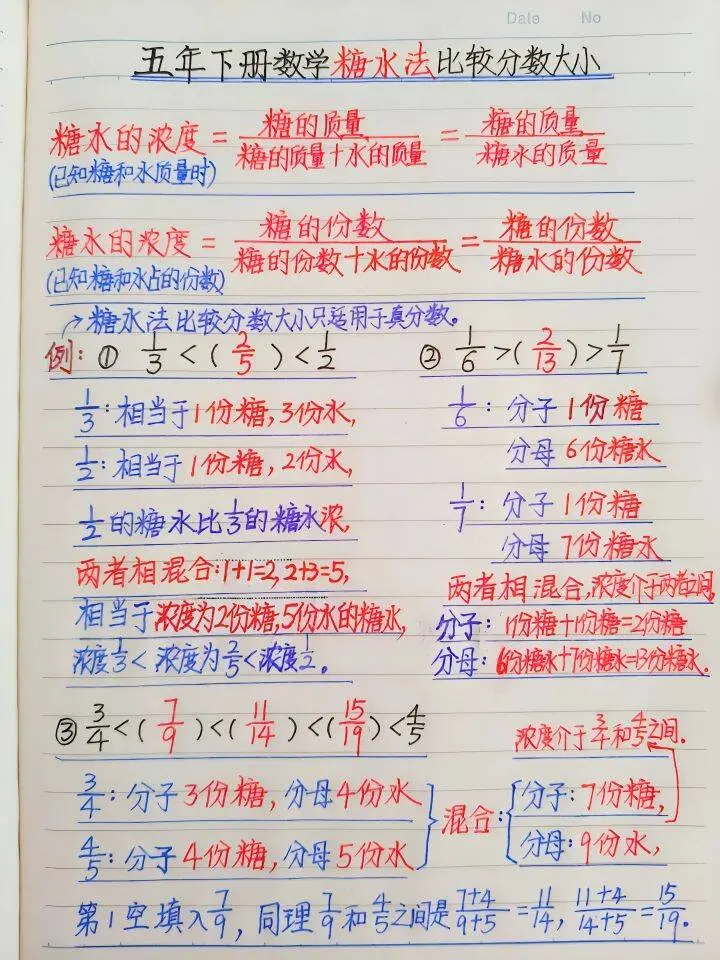 Date No
五年下册数学糖水法比较分数大小
糖水的浓度 = 糖的质量/糖的质量+水的质量 = 糖的质量/糖水的质量
(已知糖和水质量时)
糖水的浓度 = 糖的份数/糖的份数+水的份数 = 糖的份数/糖水的份数
(已知糖和水占的份数)
→糖水法比较分数大小只适用于真分数。
例: ① 1/3 < ( 2/5 ) < 1/2
1/3: 相当于1份糖, 3份水,
1/2: 相当于1份糖, 2份水,
1/2的糖水比1/3的糖水浓,
两者相混合: 1+1=2, 2+3=5,
相当于浓度为2份糖, 5份水的糖水,
浓度1/3 < 浓度为2/5 < 浓度1/2。
② 1/6 > ( 2/13 ) > 1/7
1/6: 分子 1份糖
分母 6份糖水
1/7: 分子 1份糖
分母 7份糖水
两者相混合, 浓度介于两者之间,
分子: 1份糖+1份糖=2份糖
分母: 6份糖水+7份糖水=13份糖水.
③ 3/4 < ( 7/9 ) < ( 11/14 ) < ( 15/19 ) < 4/5
3/4: 分子3份糖, 分母4份水
4/5: 分子4份糖, 分母5份水
混合:
分子: 7份糖,
分母: 9份水,
浓度介于3/4和4/5之间.
第1空填入7/9, 同理7/9和4/5之间是7+4/9+5 = 11/14, 11+4/14+5 = 15/19.